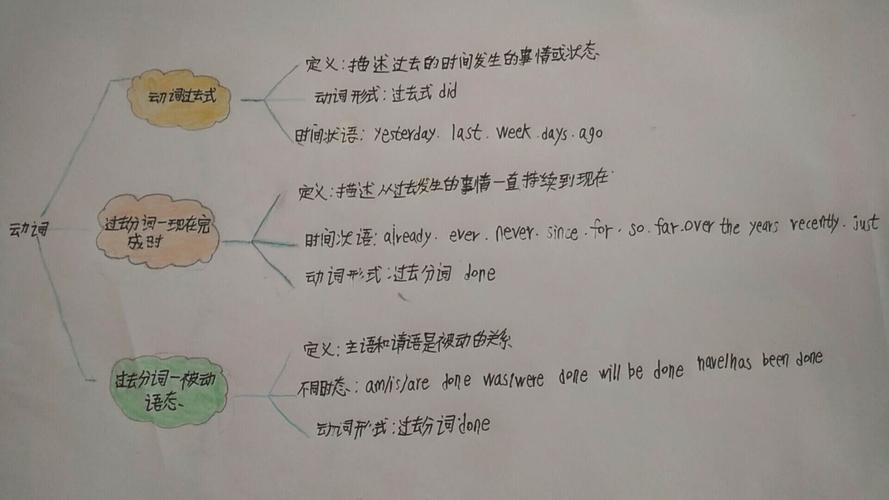 动词
动词过去式
定义:描述过去的时间发生的事情或状态
动词形式:过去式 did
时间状语: yesterday. last. week. days. ago
过去分词一现在完
成时
定义:描述从过去发生的事情一直持续到现在
时间状语: already. ever. never. since. for. so. far. over the years recently. just
动词形式:过去分词 done
过去分词一被动
语态
定义:主语和请语是被动的关系
不同时态: am/is/are done was/were done will be done have/has been done
动词形式:过去分词 done